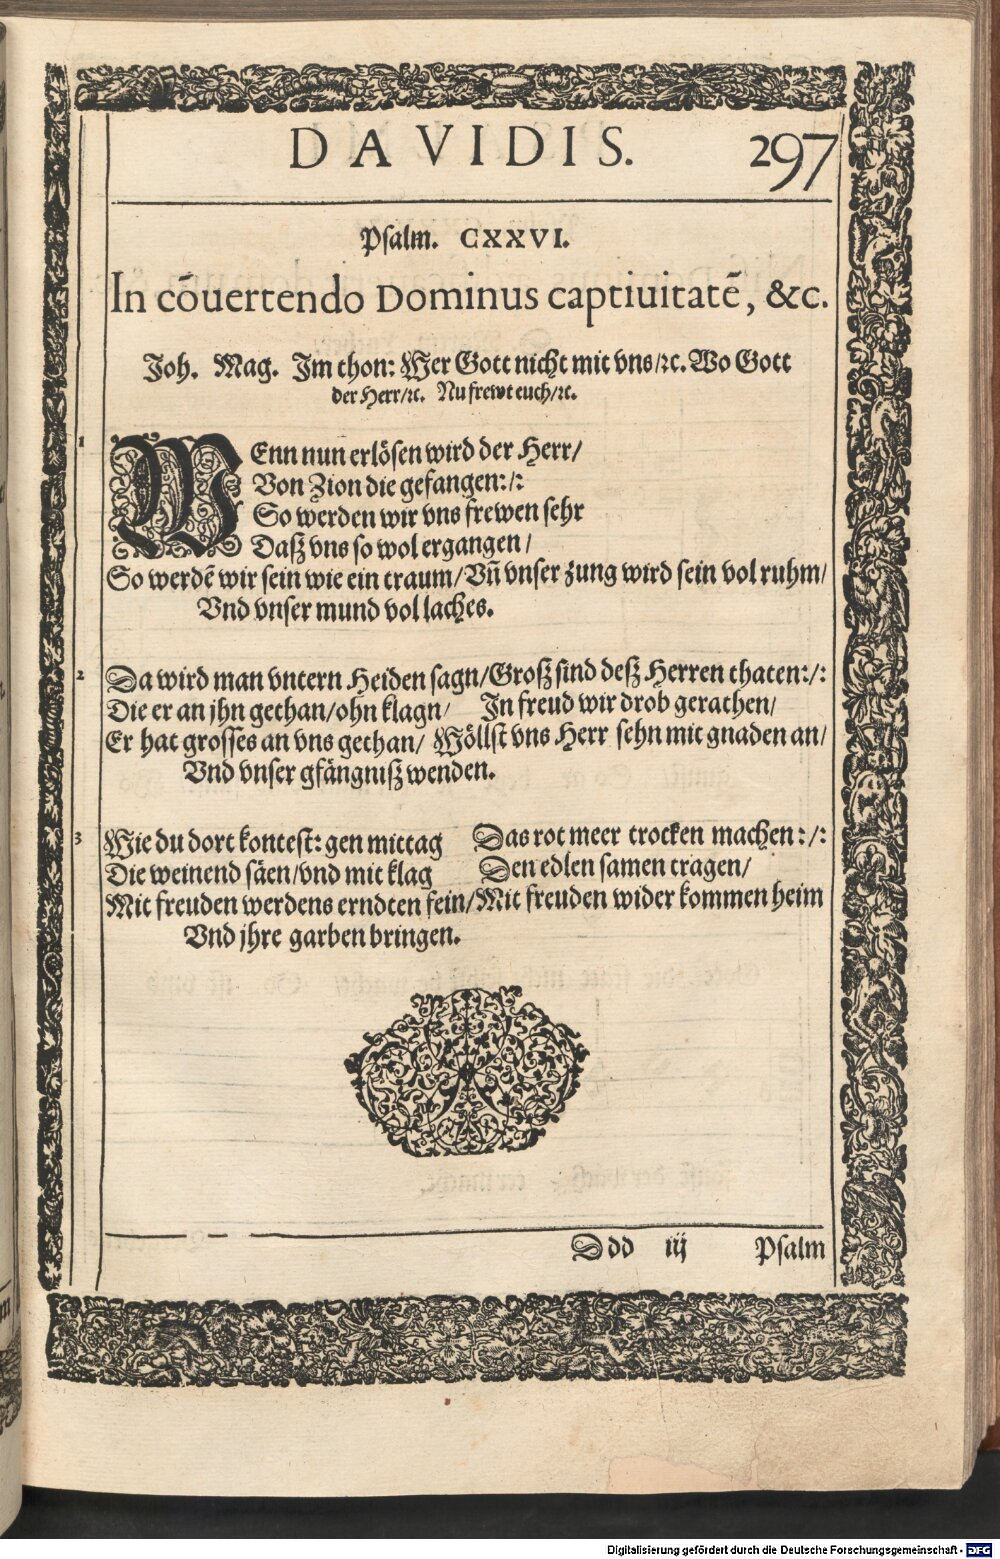 DAVIDIS. 297
Psalm. CXXVI.
In cõuertendo Dominus captiuitatẽ, &c.
Joh. Mag. Im thon: Wer Gott nicht mit vns/ꝛc. Wo Gott
der Herr/ꝛc. Nu frewt euch/ꝛc.
1 WEnn nun erlösen wird der Herr/
Von Zion die gefangen:/:
So werden wir vns frewen sehr
Dasz vns so wol ergangen/
So werdẽ wir sein wie ein traum/Vñ vnser zung wird sein vol ruhm/
Vnd vnser mund vol laches.
2 Da wird man vntern Heiden sagn/Grosz sind desz Herren thaten:/:
Die er an jhn gethan/ohn klagn/ In freud wir drob gerathen/
Er hat grosses an vns gethan/ Wöllst vns Herr sehn mit gnaden an/
Vnd vnser gfängnisz wenden.
3 Wie du dort kontest: gen mittag Das rot meer trocken machen:/:
Die weinend säen/vnd mit klag Den edlen samen tragen/
Mit freuden werdens erndten fein/Mit freuden wider kommen heim
Vnd jhre garben bringen.
Ddd iij Psalm
Digitalisierung gefördert durch die Deutsche Forschungsgemeinschaft - DFG